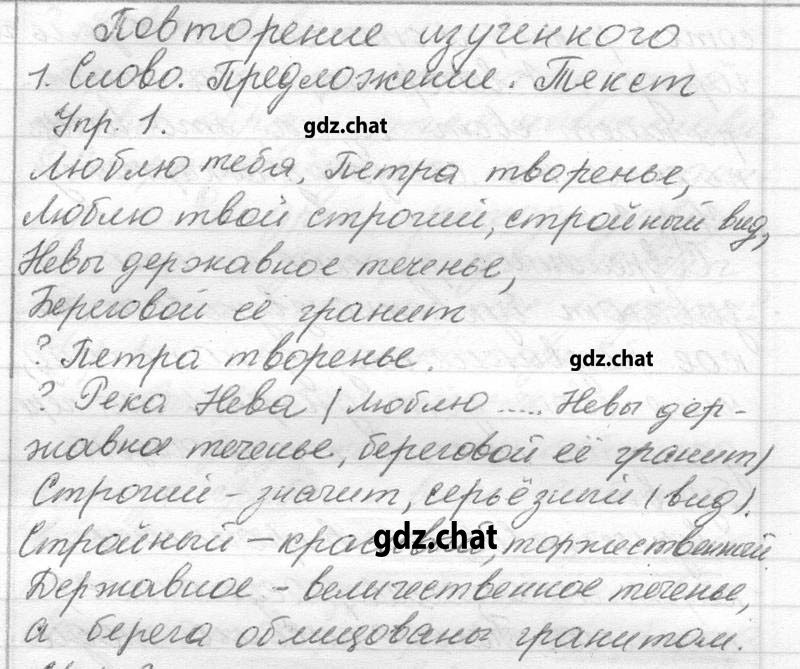 Повторение изученного
1. Слово. Предложение. Текст
Упр. 1.
gdz.chat
Люблю тебя, Петра творенье,
Люблю твой строгий, стройный вид,
Невы державное теченье,
Береговой её гранит
? Петра творенье.
gdz.chat
? Река Нева (Люблю ..... Невы дер-
жавное теченье, береговой её гранит)
Строгий – значит, серьёзный (вид).
Стройный – красивый, торжественный.
gdz.chat
Державное – величественное теченье,
а берега облицованы гранитом.